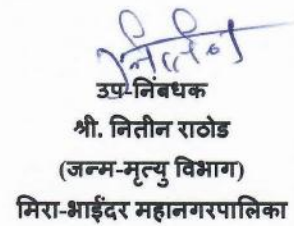 उप-निंबधक
श्री. नितीन राठोड
(जन्म-मृत्यु विभाग)
मिरा-भाईंदर महानगरपालिका